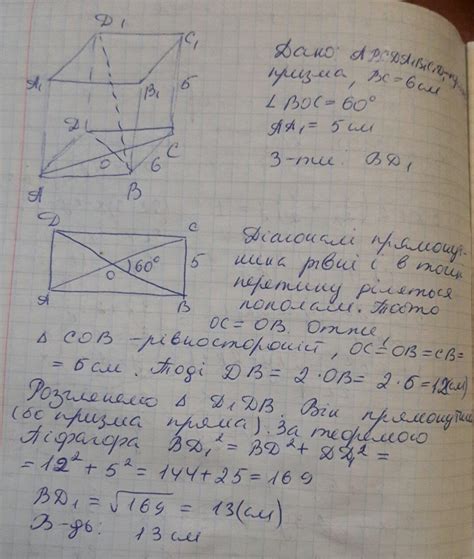 D₁ C₁
A₁ B₁ 5
D C
O 6
A B
Дано: ABCDA₁B₁C₁D₁
призма, BC = 6 см
∠BOC = 60°
AA₁ = 5 см
З-ти: BD₁
D C
O 60° 5
A B
Діагоналі прямокут-
ника рівні і в точці
перетину діляться
пополам. Тобто
OC = OB. Отже
Δ COB - рівносторонній, OC = OB = CB =
= 6 см. Тоді DB = 2·OB = 2·6 = 12 (см)
Розглянемо Δ D₁DB. Він прямокутний
(бо призма пряма). За теоремою
Піфагора BD₁² = BD² + DD₁² =
= 12² + 5² = 144 + 25 = 169
BD₁ = √169 = 13 (см)
В-дь: 13 см